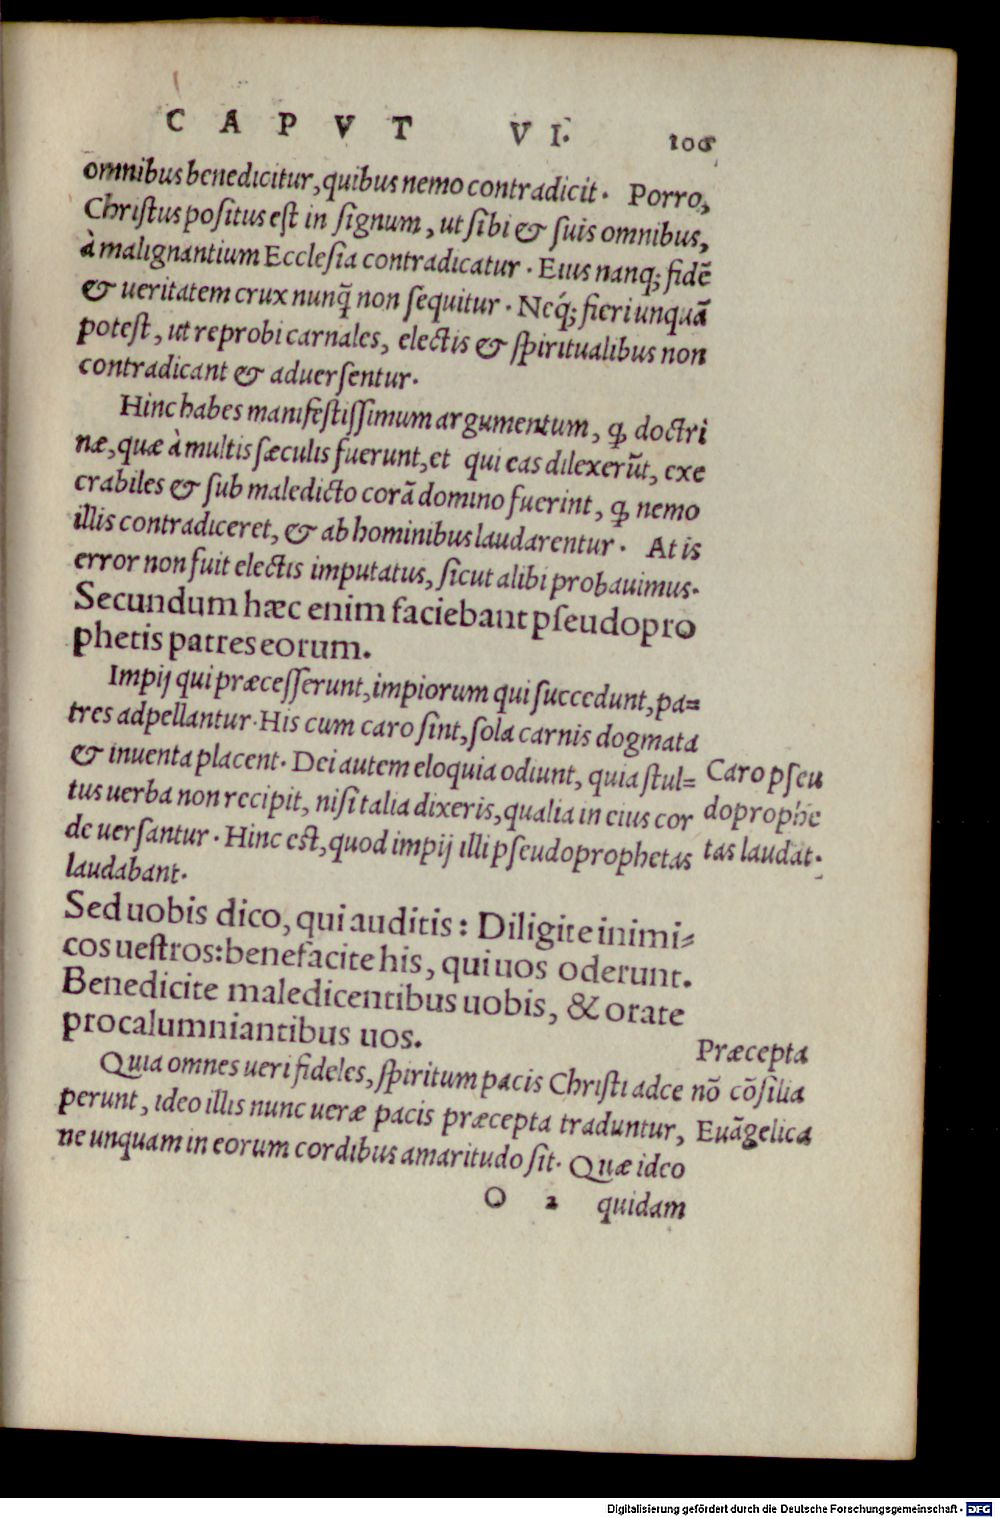 CAPVT VI. 106
omnibus benedicitur, quibus nemo contradicit. Porro,
Christus positus est in signum, ut sibi & suis omnibus,
à malignantium Ecclesia contradicatur. Eius nanq; fidē
& ueritatem crux nunq̃ non sequitur. Neq́; fieri unquā
potest, ut reprobi carnales, electis & spiritualibus non
contradicant & aduersentur.
Hinc habes manifestissimum argumentum, ꝙ doctri
næ, quæ à multis sæculis fuerunt, et qui eas dilexerūt, exe
crabiles & sub maledicto corā domino fuerint, ꝙ nemo
illis contradiceret, & ab hominibus laudarentur. At is
error non fuit electis imputatus, sicut alibi probauimus.
Secundum hæc enim faciebant pseudopro
phetis patres eorum.
Impij qui præcesserunt, impiorum qui succedunt, pa=
tres adpellantur. His cum caro sint, sola carnis dogmata
& inuenta placent. Dei autem eloquia odiunt, quia stul=
tus uerba non recipit, nisi talia dixeris, qualia in eius cor
de uersantur. Hinc est, quod impij illi pseudoprophetas
laudabant.
Caro pseu
doprophe
tas laudat.
Sed uobis dico, qui auditis: Diligite inimi=
cos uestros: benefacite his, qui uos oderunt.
Benedicite maledicentibus uobis, & orate
pro calumniantibus uos.
Quia omnes ueri fideles, spiritum pacis Christi adce
perunt, ideo illis nunc ueræ pacis præcepta traduntur,
ne unquam in eorum cordibus amaritudo sit. Quæ ideo
Præcepta
nō cōsilia
Euāgelica
O 2 quidam
Digitalisierung gefördert durch die Deutsche Forschungsgemeinschaft - DFG